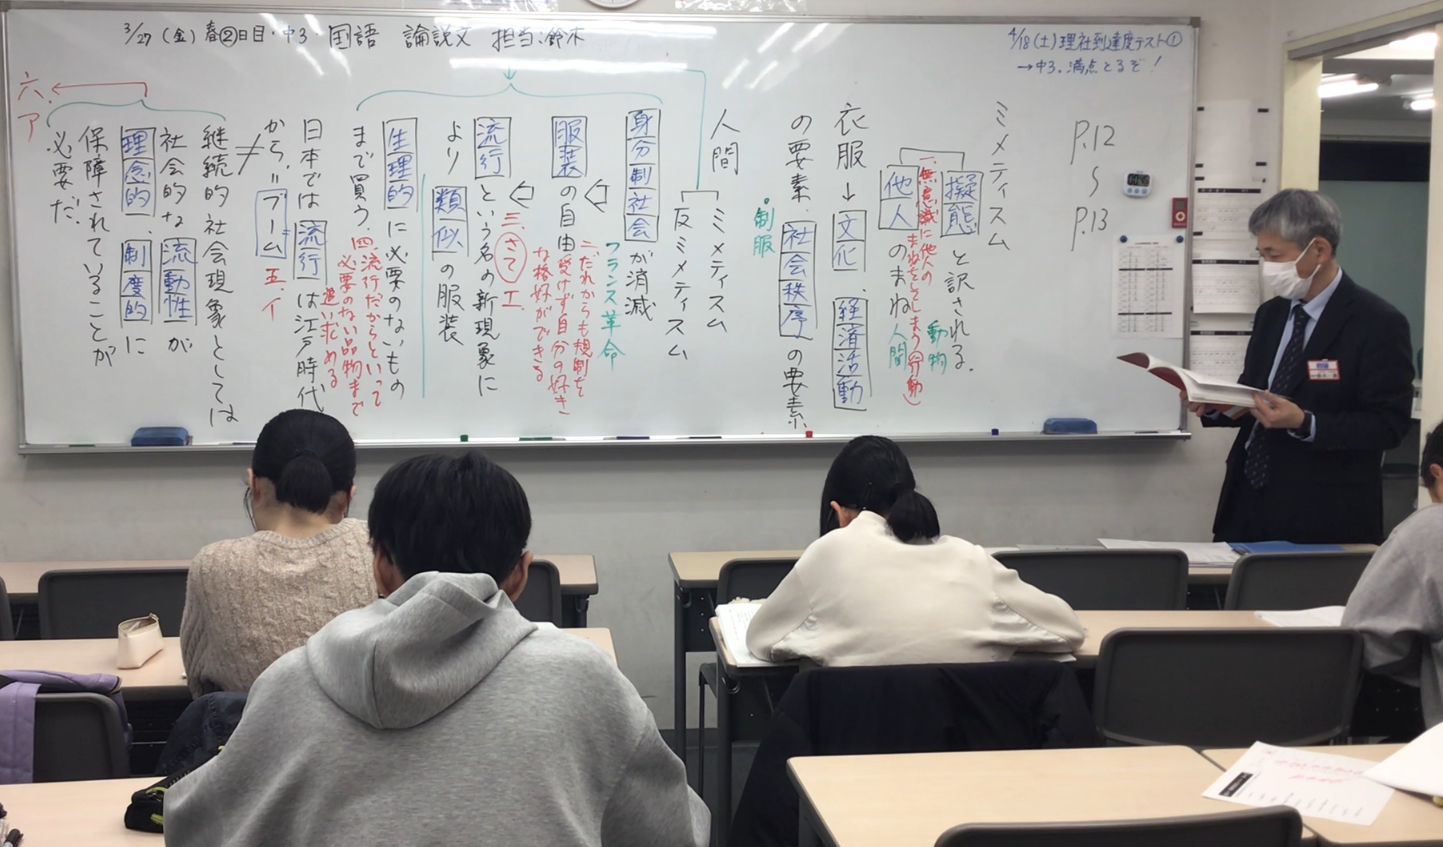 3/27(金)春②日目・中3・国語 論説文 担当:鈴木
4/18(土)理社到達度テスト①
→中3.満点とるぞ!
P.12
〜
P.13
ミメティスム
擬態と訳される。
動物
一.無意識に他人の
まねをしてしまう(行動)
他人のまね
人間
衣服→文化 経済活動
の要素 社会秩序の要素
・制服
人間
ミミメティスム
反ミメティスム
身分制社会が消滅
フランス革命
服装の自由
二.だれからも規制を
受けず自分の好き
な格好ができる
三.さて エ
流行という名の新現象に
より類似の服装
生理的に必要のないもの
まで買う
四.流行だからといって
必要のない品物まで
追い求める
日本では流行は江戸時代
から.=ブーム
五.イ
≠
継続的社会現象としては
社会的な流動性が
理念的、制度的に
保障されていることが
必要だ.
六.ア